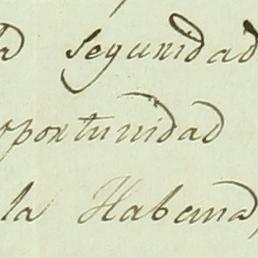 la segunidad
oportunidad
la Habana,